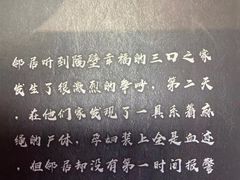 邻居听到隔壁幸福的三口之家
发生了很激烈的争吵，第二天
，在他们家发现了一具系着麻
绳的尸体，孕妇装上全是血迹
，但邻居却没有第一时间报警